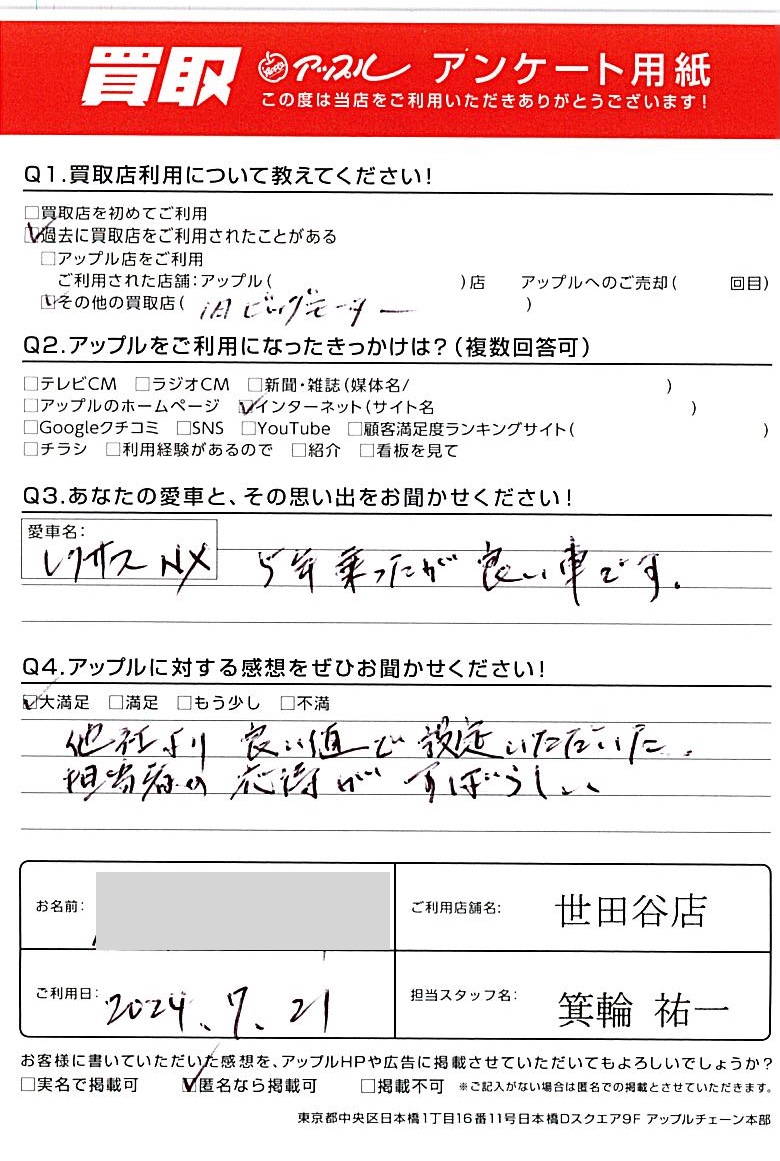 買取 アップル アンケート用紙
この度は当店をご利用いただきありがとうございます!
Q1.買取店利用について教えてください!
□買取店を初めてご利用
☑過去に買取店をご利用されたことがある
□アップル店をご利用
ご利用された店舗:アップル( )店 アップルへのご売却( 回目)
☑その他の買取店( 旧ビッグモーター )
Q2.アップルをご利用になったきっかけは?(複数回答可)
□テレビCM □ラジオCM □新聞・雑誌(媒体名/ )
□アップルのホームページ ☑インターネット(サイト名 )
□Googleクチコミ □SNS □YouTube □顧客満足度ランキングサイト( )
□チラシ □利用経験があるので □紹介 □看板を見て
Q3.あなたの愛車と、その思い出をお聞かせください!
愛車名:
レクサス NX 5年乗ったが良い車です。
Q4.アップルに対する感想をぜひお聞かせください!
☑大満足 □満足 □もう少し □不満
他社より良い値で設定いただいた。
担当者の応待がすばらしい、
お名前: ご利用店舗名: 世田谷店
ご利用日: 2024.7.21 担当スタッフ名: 箕輪 祐一
お客様に書いていただいた感想を、アップルHPや広告に掲載させていただいてもよろしいでしょうか?
□実名で掲載可 ☑匿名なら掲載可 □掲載不可 ※ご記入がない場合は匿名での掲載とさせていただきます。
東京都中央区日本橋1丁目16番11号日本橋Dスクエア9F アップルチェーン本部